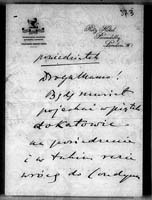 Ritz Hotel
Piccadilly
London W.
poniedziałek
Droga Mamo!
Będę musiał
pojechać w piątek
do Katowic
na posiedzenie
i w takim razie
wrócę do Londynu